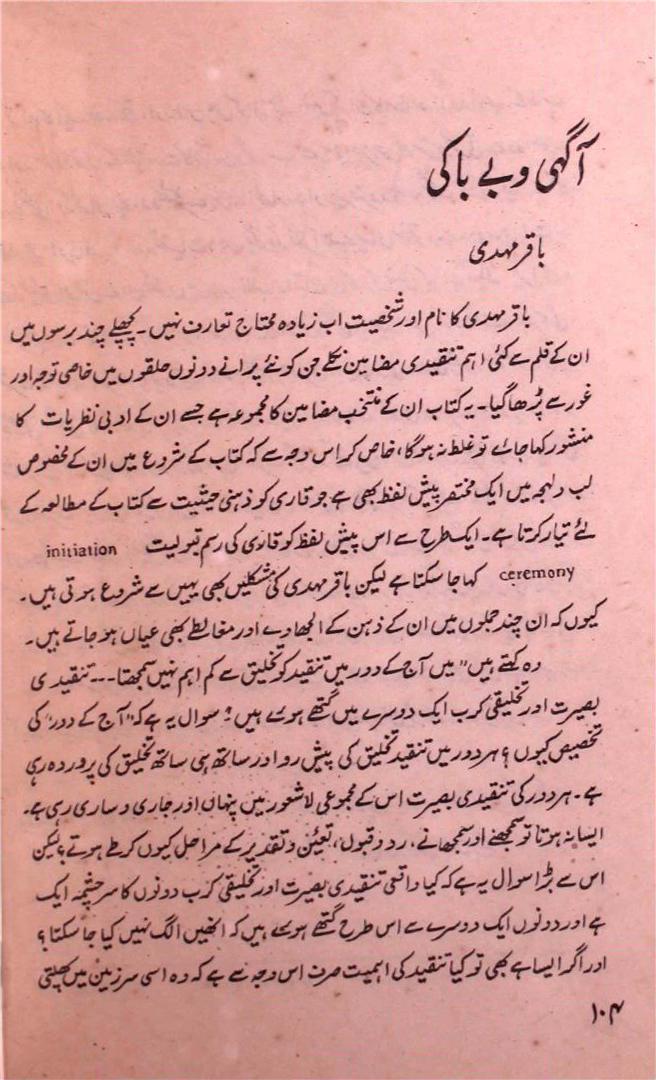 آگہی و بے باکی
باقر مہدی
باقر مہدی کا نام اور شخصیت اب زیادہ محتاج تعارف نہیں۔ پچھلے چند برسوں میں
ان کے قلم سے کئی اہم تنقیدی مضامین نکلے جن کو نئے پرانے دونوں حلقوں میں خاصی توجہ اور
غور سے پڑھا گیا۔ یہ کتاب ان کے منتخب مضامین کا مجموعہ ہے جسے ان کے ادبی نظریات کا
منشور کہا جائے تو غلط نہ ہوگا، خاص کر اس وجہ سے کہ کتاب کے شروع میں ان کے مخصوص
لب ولہجہ میں ایک مختصر پیش لفظ بھی ہے جو قاری کو ذہنی حیثیت سے کتاب کے مطالعہ کے
لئے تیار کرتا ہے۔ ایک طرح سے اس پیش لفظ کو قاری کی رسم قبولیت initiation
ceremony کہا جا سکتا ہے لیکن باقر مہدی کی مشکلیں بھی یہیں سے شروع ہوتی ہیں۔
کیوں کہ ان چند جملوں میں ان کے ذہن کے الجھاوے اور مغالطے بھی عیاں ہو جاتے ہیں۔
وہ کہتے ہیں "میں آج کے دور میں تنقید کو تخلیق سے کم اہم نہیں سمجھتا... تنقیدی
بصیرت اور تخلیقی کرب ایک دوسرے میں گتھے ہوئے ہیں؟ سوال یہ ہے کہ "آج کے دور" کی
تخصیص کیوں؟ ہر دور میں تنقید تخلیق کی پیش رو اور ساتھ ہی ساتھ تخلیق کی پروردہ رہی
ہے۔ ہر دور کی تنقیدی بصیرت اس کے مجموعی لاشعور میں پنہاں اور جاری و ساری رہی ہے۔
ایسا نہ ہوتا تو سمجھنے اور سمجھانے، رد و قبول، تعیّن و تقدیر کے مراحل کیوں کر طے ہوتے؟ لیکن
اس سے بڑا سوال یہ ہے کہ کیا واقعی تنقیدی بصیرت اور تخلیقی کرب دونوں کا سرچشمہ ایک
ہے اور دونوں ایک دوسرے سے اس طرح گتھے ہوئے ہیں کہ انھیں الگ نہیں کیا جا سکتا؟
اور اگر ایسا ہے بھی تو کیا تنقید کی اہمیت صرف اس وجہ سے ہے کہ وہ اسی سرزمین میں پھیلتی
۱۰۴